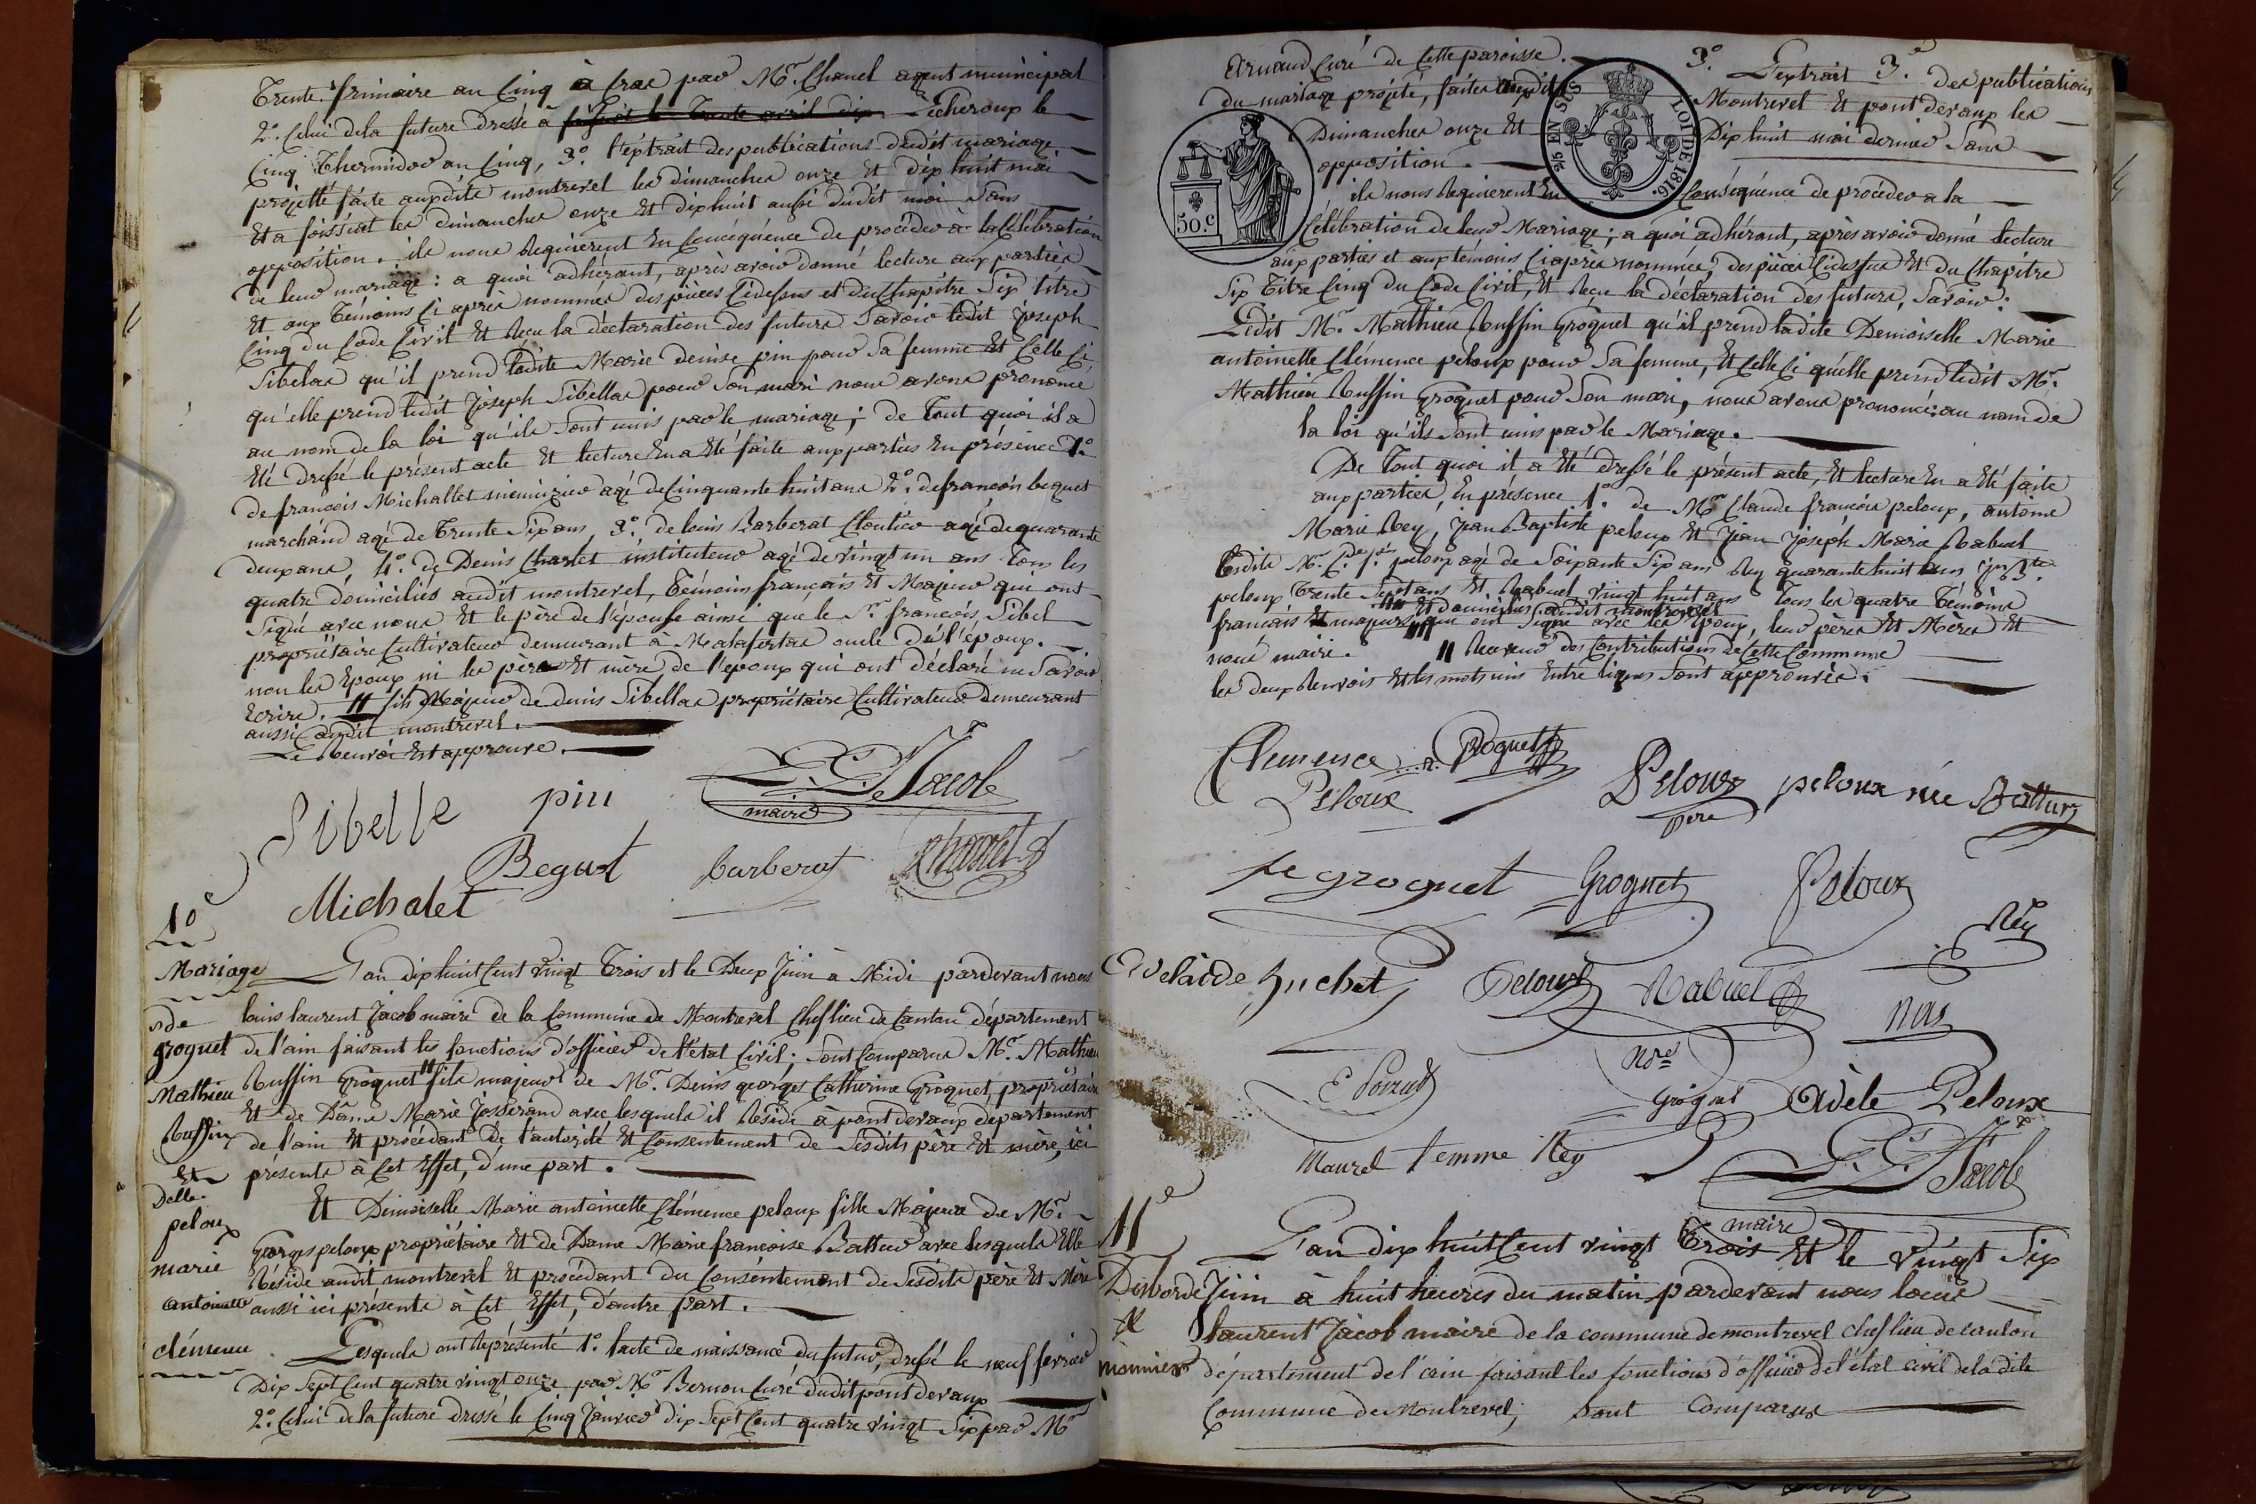 Trente frimaire an Cinq à Cras par Mr. Chanel agent municipal
2°. Celui de la future dressé à foissiat le trente avril dix écheroux le
Cinq Thermidor an Cinq, 3°. l'extrait des publications dudit mariage
projetté faite auxdits montrevel les dimanches onze Et dix huit mai
Et a foissiat les dimanches onze Et dix huit aussi dudit mai Sans
opposition. ils nous Requierent En Conséquence de procéder à la Célébration
de leur mariage : a quoi adhérant, après avoir donné lecture aux parties
Et aux Témoins Ci après nommés des pièces Cidessus et du Chapitre Six titre
Cinq du Code Civil Et Reçu la déclaration des futurs Savoir ledit Joseph
Sibelas qu'il prend ladite Marie denise pin pour Sa femme Et Celle Ci
qu'elle prend ledit Joseph Sibellas pour Son mari nous avons prononcé
au nom de la loi qu'ils Sont unis par le mariage ; de Tout quoi il a
Eté dressé le présent acte Et lecture En a Eté faite aux parties En présence 1°.
de françois Michallet menuizier agé de Cinquante huit ans 2°. de françois beguet
marchand agé de Trente Six ans, 3°. de louis Barberat Cloutier agé de quarante
deux ans, 4°. de Denis Charlet instituteur agé de vingt un ans Tous les
quatre domiciliés audit montrevel, Témoins français Et Majeurs qui ont
Signé avec nous Et le père de l'épouse ainsi que le Sr. françois Sibel
propriétaire Cultivateur demeurant à Malafertas oncle de l'époux.
non les Epoux ni les père Et mère de l'époux qui ont déclaré ne Savoir
Ecrire. // fils Majeur de denis Sibellas propriétaire Cultivateur demeurant
aussi audit montrevel.
Le Renvoi Est approuvé.
Sibelle pin L. L. Jacob
maire
Michalet Begust Barberat Charlet
10e
Mariage
de
groguet
Mathieu
Ruffin
Et
Delle.
peloux
marie
antoinette
clémence
L'an dix huit Cent vingt Trois et le Deux Juin à Midi pardevant nous
louis laurent Jacob maire de la Commune de Montrevel Chef lieu de Canton département
de l'ain faisant les fonctions d'officier de l'état Civil ; Sont Comparus Mr. Mathieu
Ruffin Groguet // fils majeur de Mr. Denis georges Catherine Groguet, propriétaire
Et de Dame Marie Josserand avec lesquels il Réside à pontdevaux département
de l'ain Et procédant De l'autorité Et Consentement de Sesdits père Et mère, ici
présents à Cet Effet, d'une part.
Et Demoiselle Marie antoinette Clémence peloux fille Majeure de Mr.
Georges peloux propriétaire Et de Dame Marie françoise Battur avec lesquels Elle
Réside audit montrevel Et procédant du Consentement de Sesdits père Et Mère
aussi ici présents à Cet Effet, d'autre part.
Lesquels ont Représenté 1°. l'acte de naissance du futur, dressé le neuf fevrier
Dix Sept Cent quatre vingt onze par Mr. Bernon Curé dudit pontdevaux
2°. Celui de la future dressé le Cinq Janvier dix Sept Cent quatre vingt Six par Mr.
Arnaud Curé de Cette paroisse. 3°. L'extrait 3°. des publications
du mariage projeté, faites auxdits Montrevel Et pontdevaux les
Dimanches onze Et Dix huit mai dernier Sans
opposition.
50.c
25 EN SUS LOI DE 1816.
ils nous Requierent En Conséquence de procéder a la
Célébration de leur Mariage ; a quoi adhérant, après avoir donné lecture
aux parties et aux témoins Ci après nommés, des pièces Cidessus Et du Chapitre
Six Titre Cinq du Code Civil, Et Reçu la déclaration des futurs, Savoir :
Ledit Mr. Mathieu Ruffin Groguet qu'il prend ladite Demoiselle Marie
antoinette Clémence peloux pour Sa femme, Et Celle Ci qu'elle prend ledit Mr.
Mathieu Ruffin Groguet pour Son mari, nous avons prononcé au nom de
la loi qu'ils Sont unis par le Mariage.
De Tout quoi il a Eté dressé le présent acte, Et lecture En a Eté faite
aux parties, En présence 1°. de Mr. Claude françois peloux, antoine
Marie Rey, Jean Baptiste peloux Et Jean Joseph Marie Rabuel
Lesdits Mr. Cde. fs. peloux agé de Soixante Six ans Rey quarante huit ans Jn. Bte.
peloux Trente Sept ans Et Rabuel vingt huit ans Tous les quatre Témoins
Et domiciliés audit montrevel
français Et majeurs qui ont Signé avec les Epoux, leur pères Et Mères Et
nous maire. // Receveur des Contributions de Cette Commune
les deux Renvois Et les mots mis Entre lignes Sont approuvés.
Clemence Peloux Groguet Peloux père peloux née Battur
fe groguet Groguet Peloux
Adelaïde huchet Peloux Rabuel Rey
groguet Adèle Peloux
Maurel femme Rey L. L. Jacob
maire
11e
Desborde
&
monnier
L'an dix huit Cent vingt Trois Et le vingt Six
Juin à huit heures du matin pardevant nous louis
laurent Jacob maire de la commune de montrevel chef lieu de canton
département de l'ain faisant les fonctions d'officier de l'état civil de la dite
Commune de Montrevel, Sont Comparus